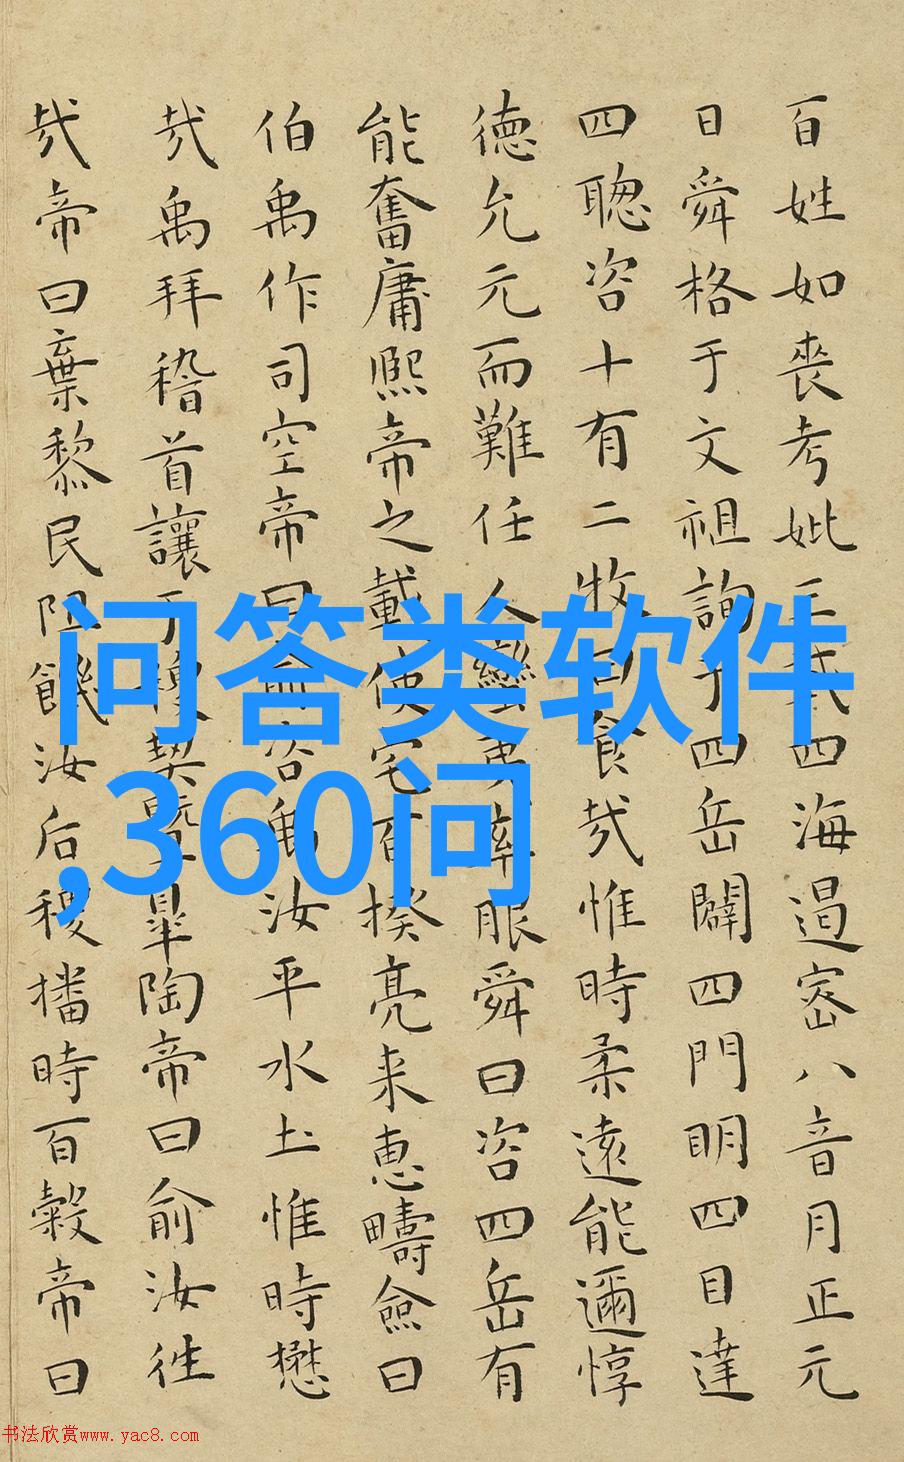 百姓如喪考妣三載四海遏密八音月正元
日舜格于文祖詢于四岳闢四門明四目達
四聰咨十有二牧曰食哉惟時柔遠能邇惇
德允元而難任人蠻夷率服舜曰咨四岳有
能奮庸熙帝之載使宅百揆亮来惠疇僉曰
伯禹作司空帝曰俞咨禹汝平水土惟時懋
哉禹拜稽首讓于稷契暨皋陶帝曰俞汝往
哉帝曰棄黎民阻饑汝后稷播時百穀帝曰
问答类软件
,360问
书法欣赏www.yac8.com